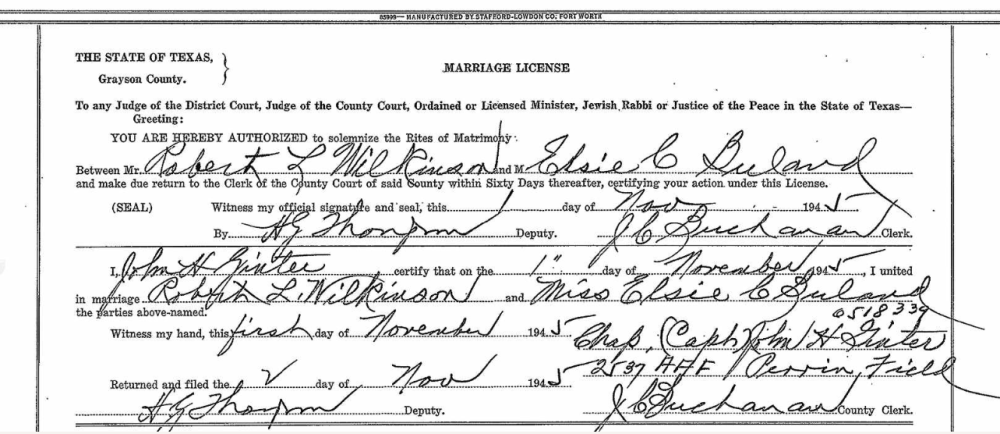 85999— MANUFACTURED BY STAFFORD-LOWDON CO., FORT WORTH
THE STATE OF TEXAS, }
Grayson County.
MARRIAGE LICENSE
To any Judge of the District Court, Judge of the County Court, Ordained or Licensed Minister, Jewish Rabbi or Justice of the Peace in the State of Texas—
Greeting:
YOU ARE HEREBY AUTHORIZED to solemnize the Rites of Matrimony
Between Mr. Robert L Wilkinson and M Elsie C Buland
and make due return to the Clerk of the County Court of said County within Sixty Days thereafter, certifying your action under this License.
(SEAL) Witness my official signature and seal, this 1 day of Nov 1945
By HG Thompson Deputy. J C Buchanan Clerk.
I, John H Ginter, certify that on the 1" day of November 1945, I united
in marriage Robert L. Wilkinson and Miss Elsie C Buland
the parties above-named. 0518339
Witness my hand, this first day of November 1945 Chap. (Capt) John H Ginter
2537 AAF Perrin Field
Returned and filed the 2 day of Nov 1945
HG Thompson Deputy. J C Buchanan County Clerk.